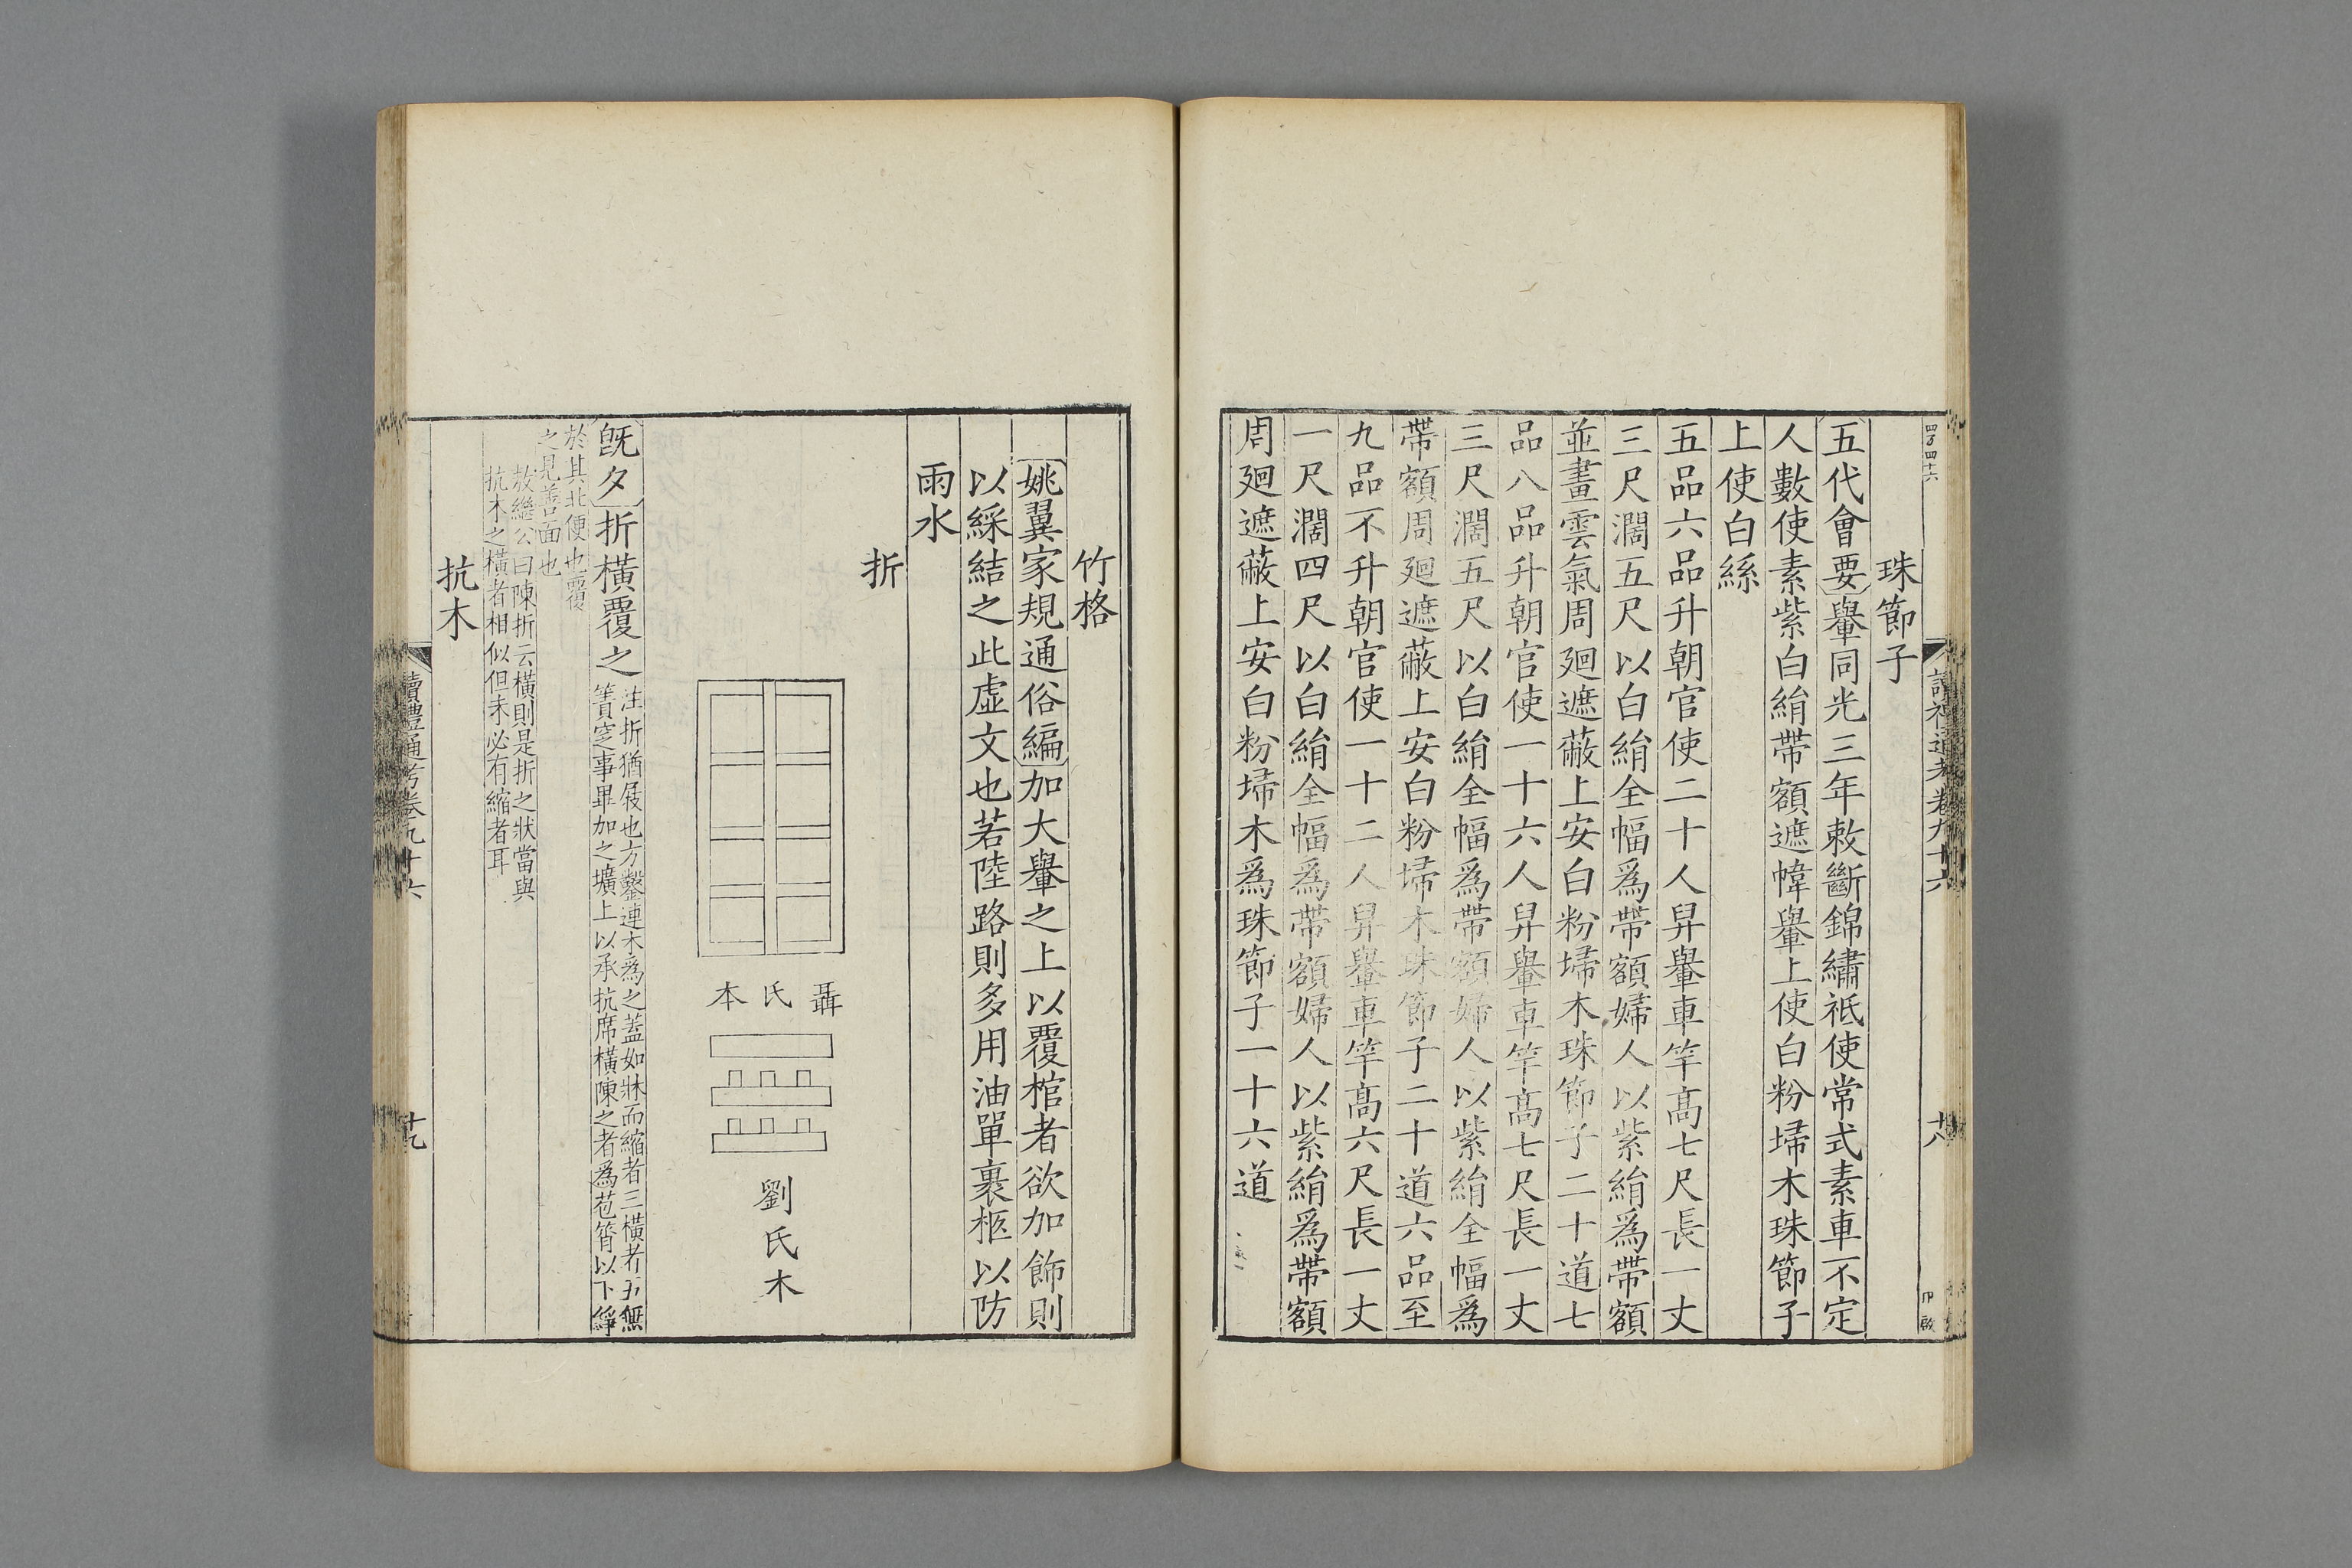 珠節子
五代會要轝同光三年敕斷錦繡祗使常式素車不定
人數使素紫白絹帶額遮幃轝上使白粉埽木珠節子
上使白絲
五品六品升朝官使二十人舁轝車竿高七尺長一丈
三尺濶五尺以白絹全幅爲帶額婦人以紫絹爲帶額
並畫雲氣周廻遮蔽上安白粉埽木珠節子二十道七
品八品升朝官使一十六人舁轝車竿高七尺長一丈
三尺濶五尺以白絹全幅爲帶額婦人以紫絹全幅爲
帶額周廻遮蔽上安白粉埽木珠節子二十道六品至
九品不升朝官使一十二人舁轝車竿高六尺長一丈
一尺濶四尺以白絹全幅爲帶額婦人以紫絹爲帶額
周廻遮蔽上安白粉埽木爲珠節子一十六道
竹格
姚翼家規通俗編加大轝之上以覆棺者欲加飾則
以綵結之此虛文也若陸路則多用油單裹柩以防
雨水
折
聶氏本
劉氏木
旣夕折橫覆之
注折猶庪也方鑿連木爲之蓋如牀而縮者三橫者五無
簀窆事畢加之壙上以承抗席橫陳之者爲苞筲以下綪
於其北便也覆
之見善面也
敖繼公曰陳折云橫則是折之狀當與
抗木之橫者相似但未必有縮者耳
抗木
讀禮通考卷九十六
十九